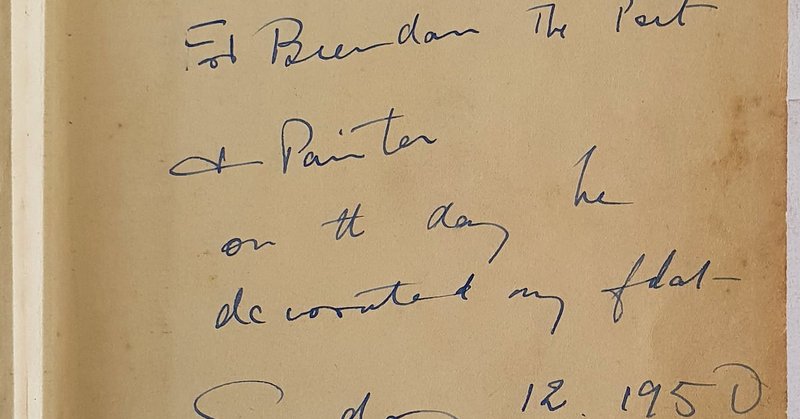 For Brendan The Poet
& Painter
on the day he
decorated my flat—
Sunday 12. 1950